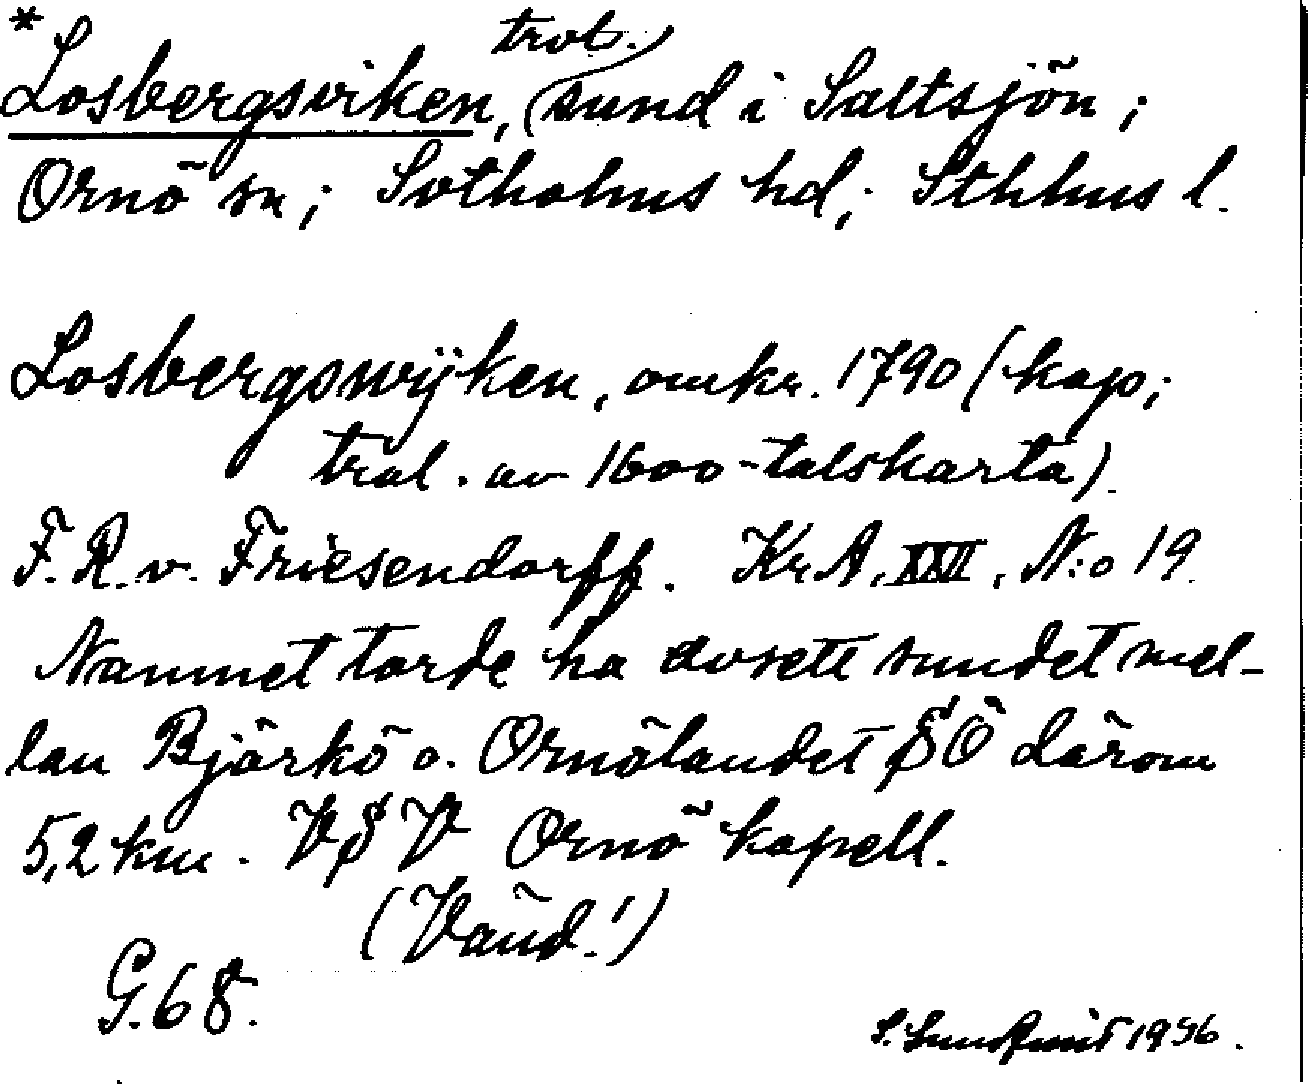 * Losbergsviken, (trol.) sund i Saltsjön;
Ornö sn; Sotholms hd; Sthlms l.
Losbergswÿken, omkr. 1790 (kop;
trol. av 1600-talskarta).
F. R. v. Friesendorff. Kr. A. XXVI, N:o 19.
Namnet torde ha avsett sundet mel-
lan Björkö o. Ornölandet SÖ därom
5,2 km. VSV Ornö kapell.
(Vänd!)
G. 68.
S. Sundqvist 1956.